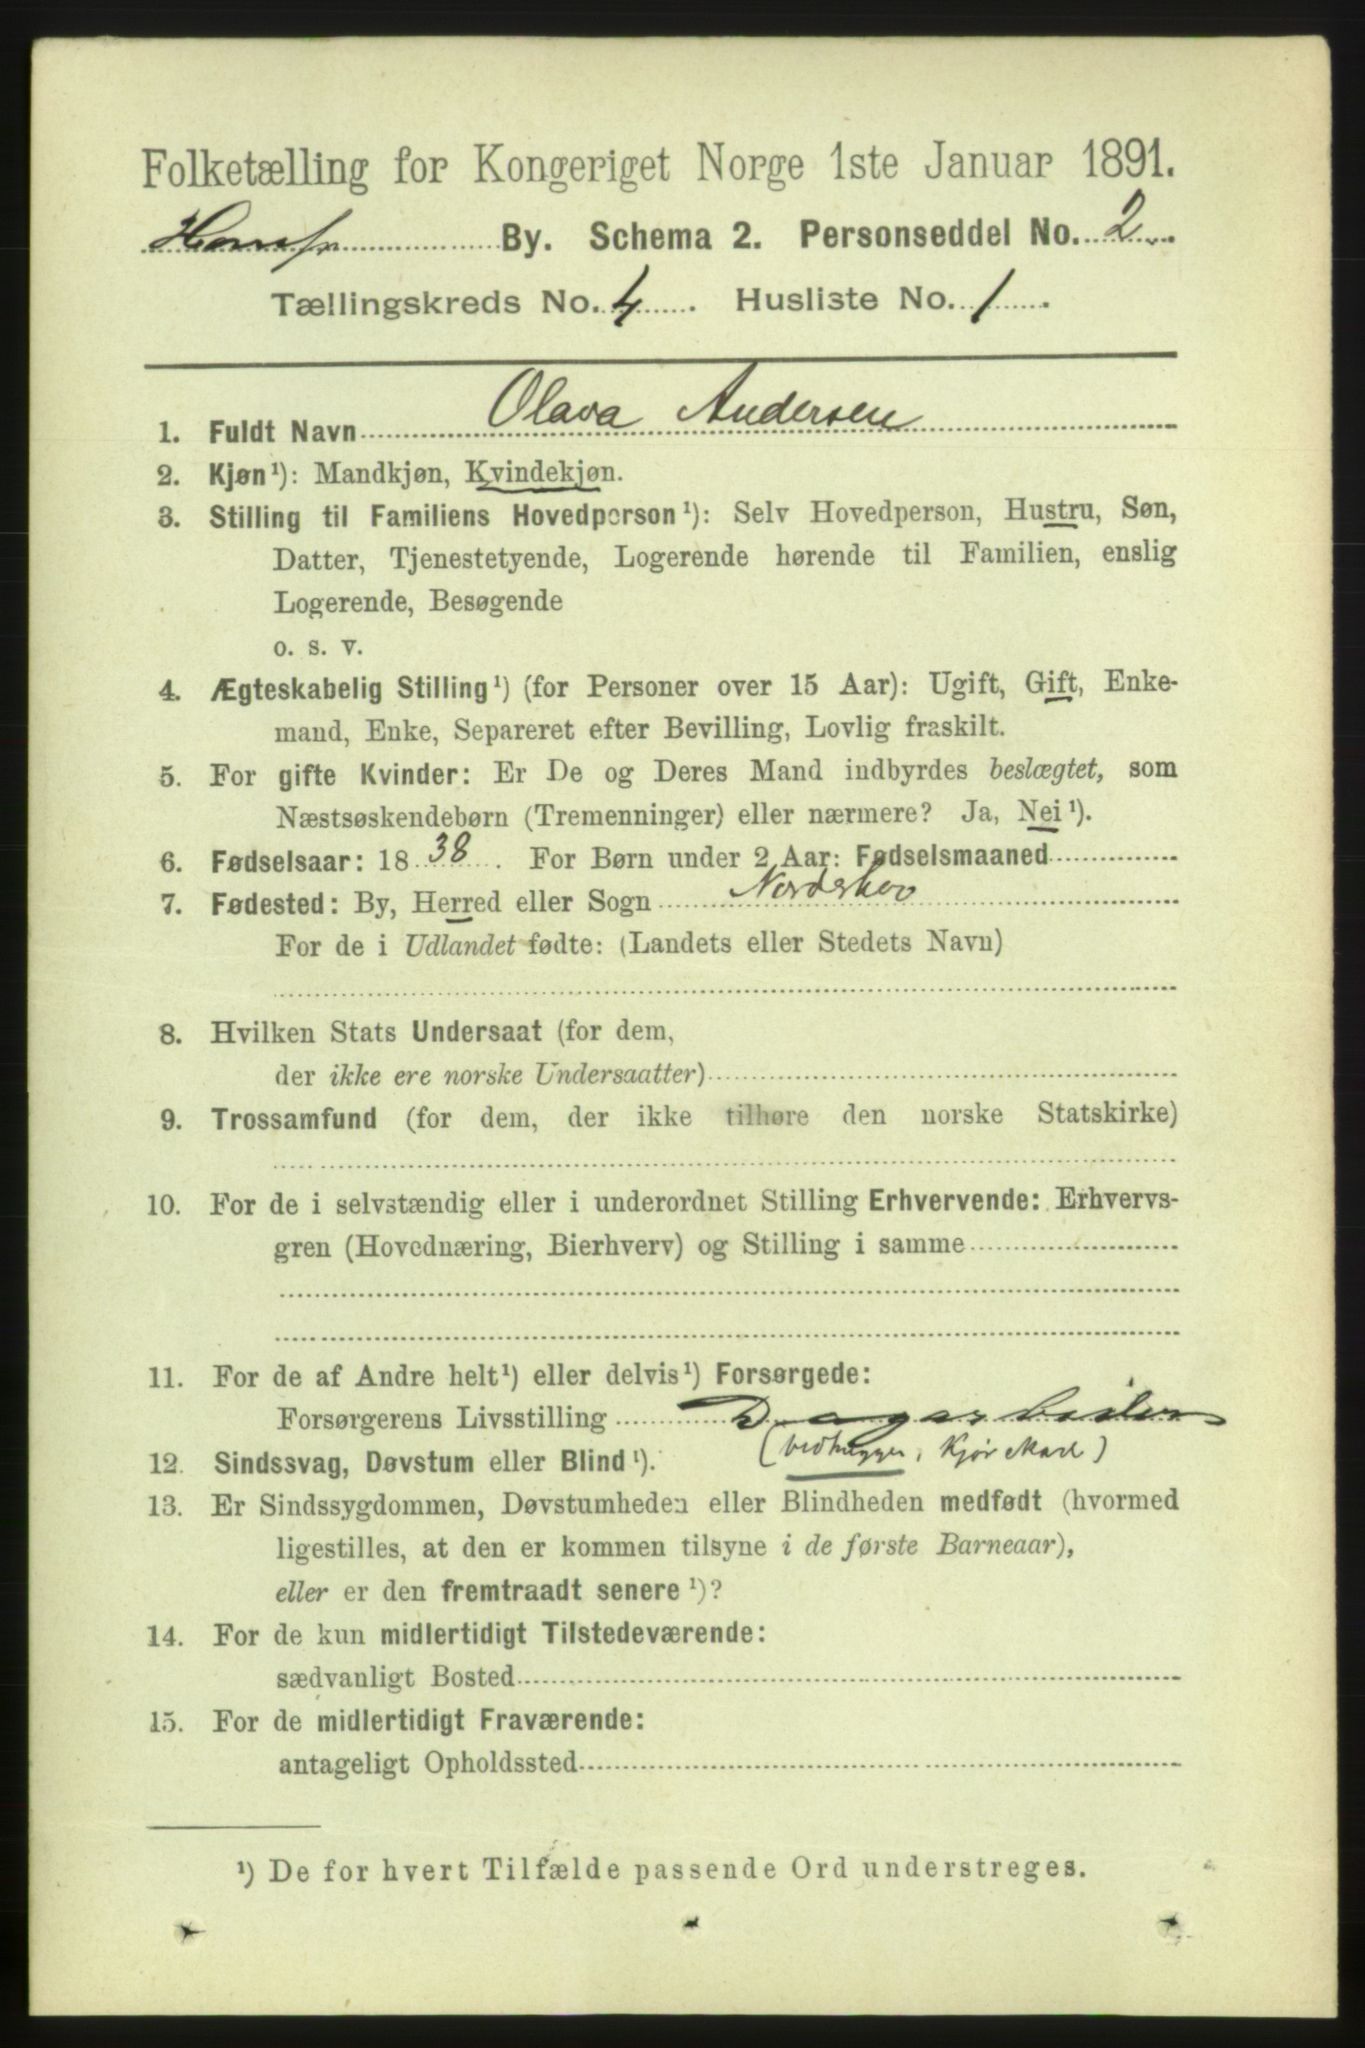 Folketælling for Kongeriget Norge 1ste Januar 1891.
Hønefos By. Schema 2. Personseddel No. 2
Tællingskreds No. 4. Husliste No. 1.
1. Fuldt Navn Olava Andersen
2. Kjøn¹): Mandkjøn, Kvindekjøn.
3. Stilling til Familiens Hovedperson¹): Selv Hovedperson, Hustru, Søn,
Datter, Tjenestetyende, Logerende hørende til Familien, enslig
Logerende, Besøgende
o. s. v.
4. Ægteskabelig Stilling¹) (for Personer over 15 Aar): Ugift, Gift, Enke-
mand, Enke, Separeret efter Bevilling, Lovlig fraskilt.
5. For gifte Kvinder: Er De og Deres Mand indbyrdes beslægtet, som
Næstsøskendebørn (Tremenninger) eller nærmere? Ja, Nei¹).
6. Fødselsaar: 1838. For Børn under 2 Aar: Fødselsmaaned
7. Fødested: By, Herred eller Sogn Norderhov
For de i Udlandet fødte: (Landets eller Stedets Navn)
8. Hvilken Stats Undersaat (for dem,
der ikke ere norske Undersaatter)
9. Trossamfund (for dem, der ikke tilhøre den norske Statskirke)
10. For de i selvstændig eller i underordnet Stilling Erhvervende: Erhvervs-
gren (Hovednæring, Bierhverv) og Stilling i samme
11. For de af Andre helt¹) eller delvis¹) Forsørgede:
Forsørgerens Livsstilling Dagarbeider
(vedhugger, Kjør Mad)
12. Sindssvag, Døvstum eller Blind¹).
13. Er Sindssygdommen, Døvstumheden eller Blindheden medfødt (hvormed
ligestilles, at den er kommen tilsyne i de første Barneaar),
eller er den fremtraadt senere¹)?
14. For de kun midlertidigt Tilstedeværende:
sædvanligt Bosted
15. For de midlertidigt Fraværende:
antageligt Opholdssted
¹) De for hvert Tilfælde passende Ord understreges.